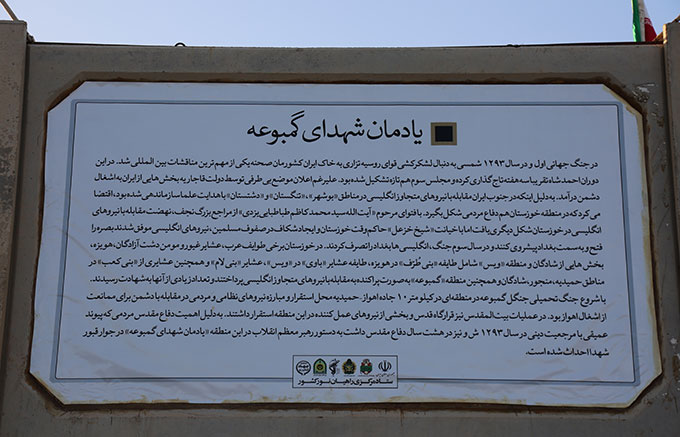 یادمان شهدای گمبوعه
در جنگ جهانی اول و در سال ۱۲۹۳ شمسی به دنبال لشکرکشی قوای روسیه تزاری به خاک ایران کشورمان صحنه یکی از مهم ترین مناقشات بین المللی شد. در این
دوران احمدشاه تقریبا سه هفته تاج گذاری کرده و مجلس سوم هم تازه تشکیل شده بود. علیرغم اعلام موضع بی طرفی توسط دولت قاجار به بخش هایی از ایران به اشغال
دشمن درآمد. به دلیل اینکه در جنوب ایران مقابله با نیروهای متجاوز انگلیسی در مناطق «بوشهر»، «تنگستان» و «دشتستان» با هدایت علما سازماندهی شده بود، اقتضا
می کرد که در منطقه خوزستان هم دفاع مردمی شکل بگیرد. با فتوای مرحوم «آیت الله سید محمد کاظم طباطبایی یزدی» از مراجع بزرگ نجف، نهضت مقابله با نیروهای
انگلیسی در خوزستان شکل دیگری یافت اما با خیانت «شیخ خزعل» حاکم وقت خوزستان و ایجاد شکاف در صفوف مسلمین، نیروهای انگلیسی موفق شدند بصره را
فتح و به سمت بغداد پیشروی کنند و در سال سوم جنگ، انگلیسی ها بغداد را تصرف کردند. در خوزستان برخی طوایف عرب، عشایر غیور و مومن دشت آزادگان، هویزه،
بخش هایی از شادگان و منطقه «ویس» شامل طایفه «بنی طُرُف» در هویزه، طایفه عشایر «باوی» در «ویس»، عشایر «بنی لام» و همچنین عشایری از «بنی کعب» در
مناطق حمیدیه، منجور، شادگان و همچنین منطقه «گمبوعه» به صورت پراکنده به مقابله با نیروهای متجاوز انگلیسی پرداختند و تعداد زیادی از آنها به شهادت رسیدند.
با شروع جنگ تحمیلی جنگل گمبوعه در منطقه ای در کیلومتر ۱۰ جاده اهواز ـ حمیدیه محل استقرار و مبارزه نیروهای نظامی و مردمی در مقابله با دشمن برای ممانعت
از اشغال اهواز بود. در عملیات بیت المقدس نیز قرارگاه قدس و بخشی از نیروهای عمل کننده در این منطقه استقرار داشتند. به دلیل اهمیت دفاع مقدس مردمی که پیوند
عمیقی با مرجعیت دینی در سال ۱۲۹۳ ش و نیز در هشت سال دفاع مقدس داشت به دستور رهبر معظم انقلاب در این منطقه «یادمان شهدای گمبوعه» در جوار قبور
شهدا احداث شده است.
ستاد مرکزی راهیان نور کشور